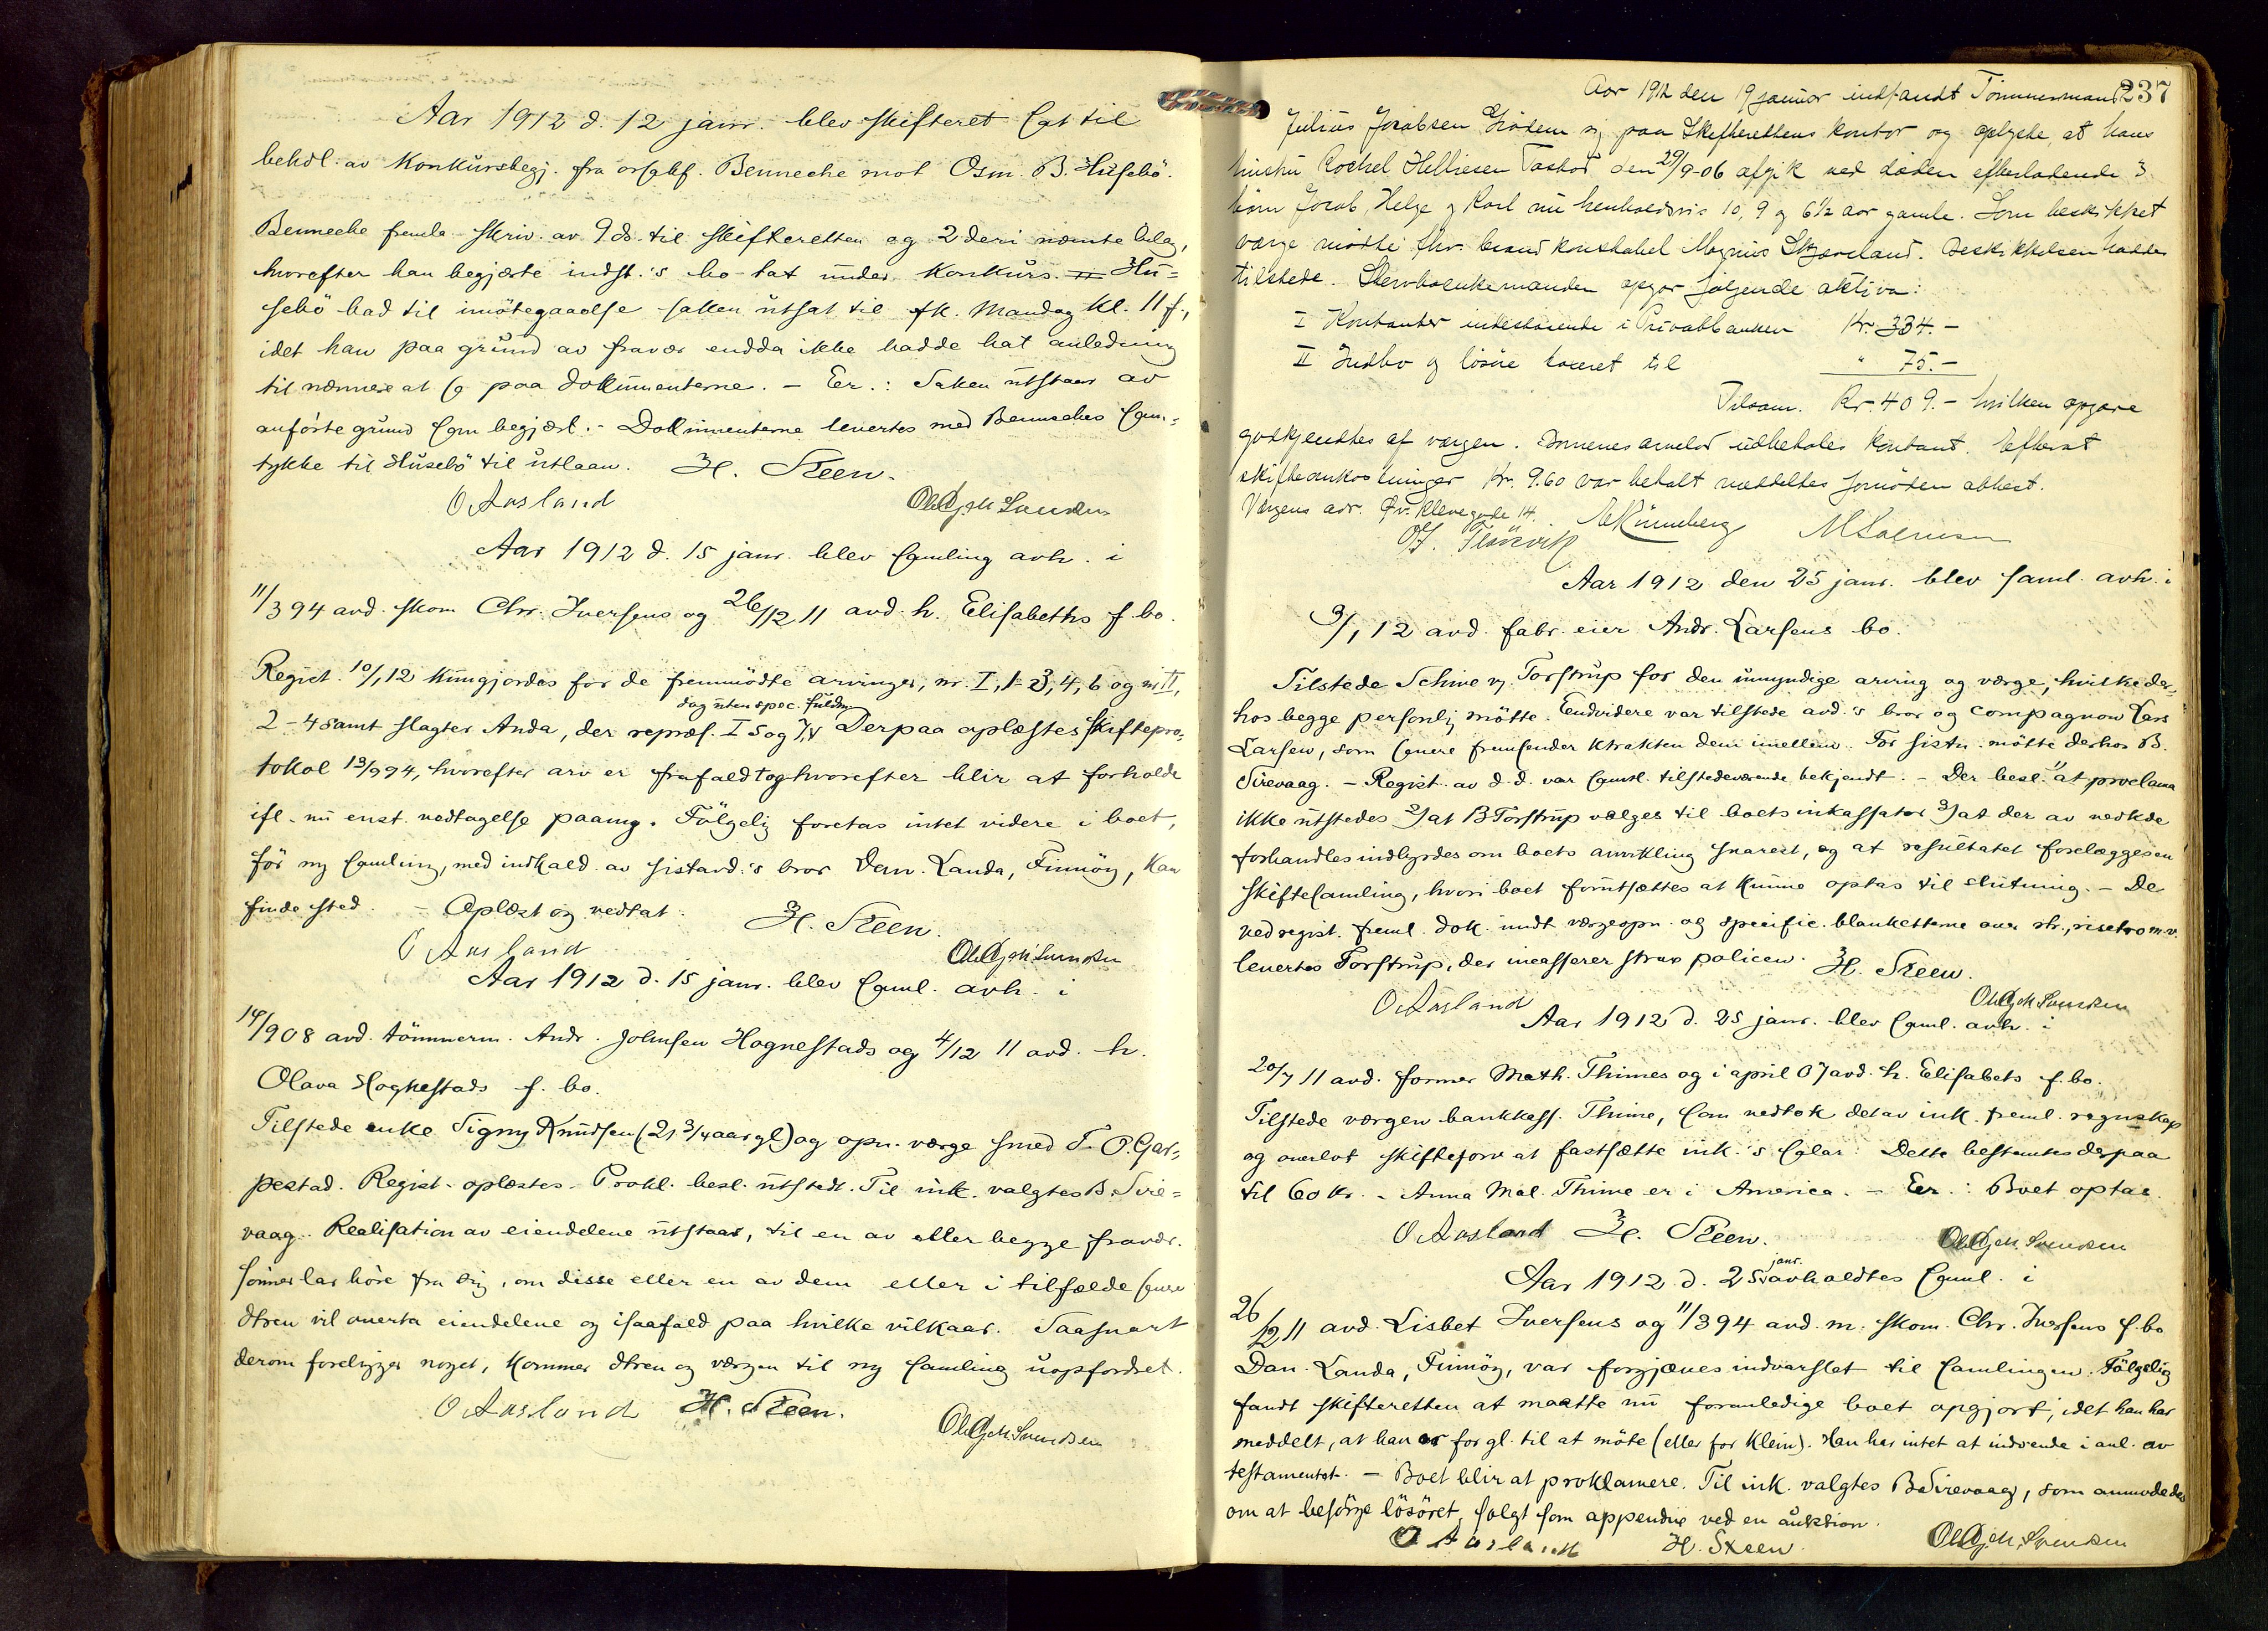 Aar 1912 d. 12 janr. blev skifteret sat til
behdl. av Konkursbegj. fra orsgkf. Benneche mot Osm. B. Husebö.
Benneche fremla skriv. av 9 ds. til skifteretten og 2 deri nævnte bilag,
hvorefter han begjærte indst.'s bo tat under Konkurs. Hu-
sebö bad til imötegaaelse saken utsat til fk. Mandag kl. 11 f.,
idet han paa grund av fravær endda ikke hadde hat anledning
til nærmere at se paa dokumenterne. – Eer.: Saken utstaar av
anförte grund som begjært. – Dokumenterne levertes med Benneches sam-
tykke til Husebö til utlaan. H. Steen.
O Aasland
Aar 1912 d. 15 janr. blev samling avh. i
11/3 94 avd. skom. Chr. Iversens og 26/12 11 avd. h. Elisabeths f. bo.
Regist. 10/1 12 kungjordes for de fremmödte arvinger, nr. I, 1-3, 4, 6 og nr II,
dog uten spec. fuldm
2-4 samt slagter Anda, der repræs. I 5 og 7. Derpaa oplæstes skiftepro-
tokol 13/9 94, hvorefter arv er frafaldt og hvorefter blir at forholde
ifl. nu enst. vedtagelse paany. Fölgelig foretas intet videre i boet,
för ny samling, med indkald. av sistavd.'s bror Dan. Landa, Finnöy, kan
finde sted. – Oplæst og vedtat. H. Steen.
O Aasland
Aar 1912 d. 15 janr. blev saml. avh. i
14/9 08 avd. tömmerm. Andr. Johnsen Hognestads og 4/12 11 avd. h.
Olava Hognestads f. bo.
Tilstede enke Signy Knudsen (21 3/4 aar gl) og opn. værge smed T. O. Gar-
pestad. Regist. oplæstes. Prokl. besl. utstedt. Til ink. valgtes B. Sire-
vaag. Realisation av eiendelene utstaar, til en av eller begge fravær.
sönner lar höre fra sig, om disse eller en av dem eller i tilfælde senere
dtren vil overta eiendelene og isaafald paa hvilke vilkaar. Saasnart
derom foreligger noget, kommer dtren og værgen til ny samling uopfordret.
O Aasland H. Steen.
237
Aar 1912 den 19 januar indfandt Tömmermand
Julius Jacobsen sig paa Skifterettens kontor og oplyste, at hans
hustru Rachel Helliesen Tastad den 29/9-06 afgik ved döden efterladende 3
börn Jacob, Helge og Karl nu henholdsvis 10, 9 og 6½ aar gamle. Som beskikket
værge mödte fhv. brandkonstabel Magnus Skjæveland. Beskikkelsen hadde
tilstede. Stervboenkemanden opgav fölgende aktiva:
I Kontanter indestaaende i Privatbanken Kr. 334.–
II Indbo og lösöre taxeret til " 75.–
Tilsam. Kr. 409.– hvilken opgave
godkjendtes af værgen. Börnenes arvelod udbetales kontant. Efterat
skifteomkostninger Kr. 9.60 var betalt meddeltes attest.
Værgens adr. Öv. Klevegade 14.
Aar 1912 den 25 janr. blev saml. avh. i
3/1 12 avd. fabr. eier Andr. Larsens bo.
Tilstede Schive v/ Torstrup for den umyndige arving og værge, hvilke der-
hos begge personlig mötte. Endvidere var tilstede avd.'s bror og compagnon Lars
Larsen, som senere fremsender ktrakten dem imellem. For sistn. mötte derhos B.
Sirevaag. – Regist. av d. d. var samtl. tilstedeværende bekjendt. – Der besl. 1) at proclama
ikke utstedes 2) at B Torstrup vælges til boets inkassator 3) at der av vedkde
forhandles indbyrdes om boets avvikling snarest, og at resultatet forelægges en
skiftesamling, hvori boet forutsættes at kunne optas til slutning. – De
ved regist. freml. dok. undt værgeopn. og specific. blanketterne over str., risetro m.v.
levertes Torstrup, der incasserer strax policen. H. Steen.
O Aasland
Aar 1912 d. 25 janr. blev saml. avh. i
20/7 11 avd. former Math. Thimes og i april 07 avd. h. Elisabets f. bo.
Tilstede værgen bankkass. Thime, som vedtok det av ink. freml. regnskap
og overlot skifteforv at fastsætte ink.'s salær. Dette bestemtes derpaa
til 60 kr. – Anna Mal. Thime er i America. – Eer.: Boet optas.
O Aasland H. Steen.
janr.
Aar 1912 d. 25 avholdtes saml. i
26/12 11 avd. Lisbet Iversens og 11/3 94 avd. m. skom. Chr. Iversens f. bo
Dan. Landa, Finnöy, var forgjæves indvarslet til samlingen. Fölgelig
fandt skifteretten at maatte nu foranledige boet opgjort, idet han har
meddelt, at han er for gl. til at möte (eller for klein). Han har intet at indvende i anl. av
testamentet. – Boet blir at proklamere. Til ink. valgtes B Sirevaag, som anmodedes
om at besörge lösöret solgt som appendix ved en auktion.
O Aasland H. Steen